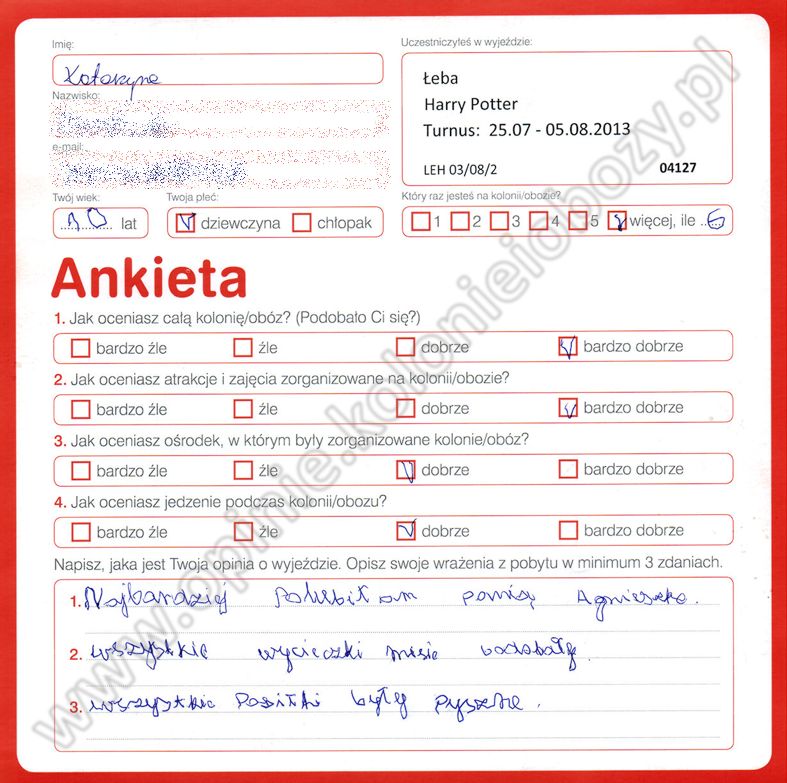 Imię:
Uczestniczyłeś w wyjeździe:
Katarzyna
Łeba
Harry Potter
Turnus: 25.07 - 05.08.2013
LEH 03/08/2 04127
Nazwisko:
e-mail:
Twój wiek: Twoja płeć: Który raz jesteś na kolonii/obozie?
10 lat dziewczyna chłopak 1 2 3 4 5 więcej, ile 6
Ankieta
1. Jak oceniasz całą kolonię/obóz? (Podobało Ci się?)
bardzo źle źle dobrze bardzo dobrze
2. Jak oceniasz atrakcje i zajęcia zorganizowane na kolonii/obozie?
bardzo źle źle dobrze bardzo dobrze
3. Jak oceniasz ośrodek, w którym były zorganizowane kolonie/obóz?
bardzo źle źle dobrze bardzo dobrze
4. Jak oceniasz jedzenie podczas kolonii/obozu?
bardzo źle źle dobrze bardzo dobrze
Napisz, jaka jest Twoja opinia o wyjeździe. Opisz swoje wrażenia z pobytu w minimum 3 zdaniach.
1. Najbardziej polubiłam Agnieszke.
2. wszystkie wycieczki misie
3. wszystkie Posiłki były pyszne.
www.opinie.kolonieiobozy.pl